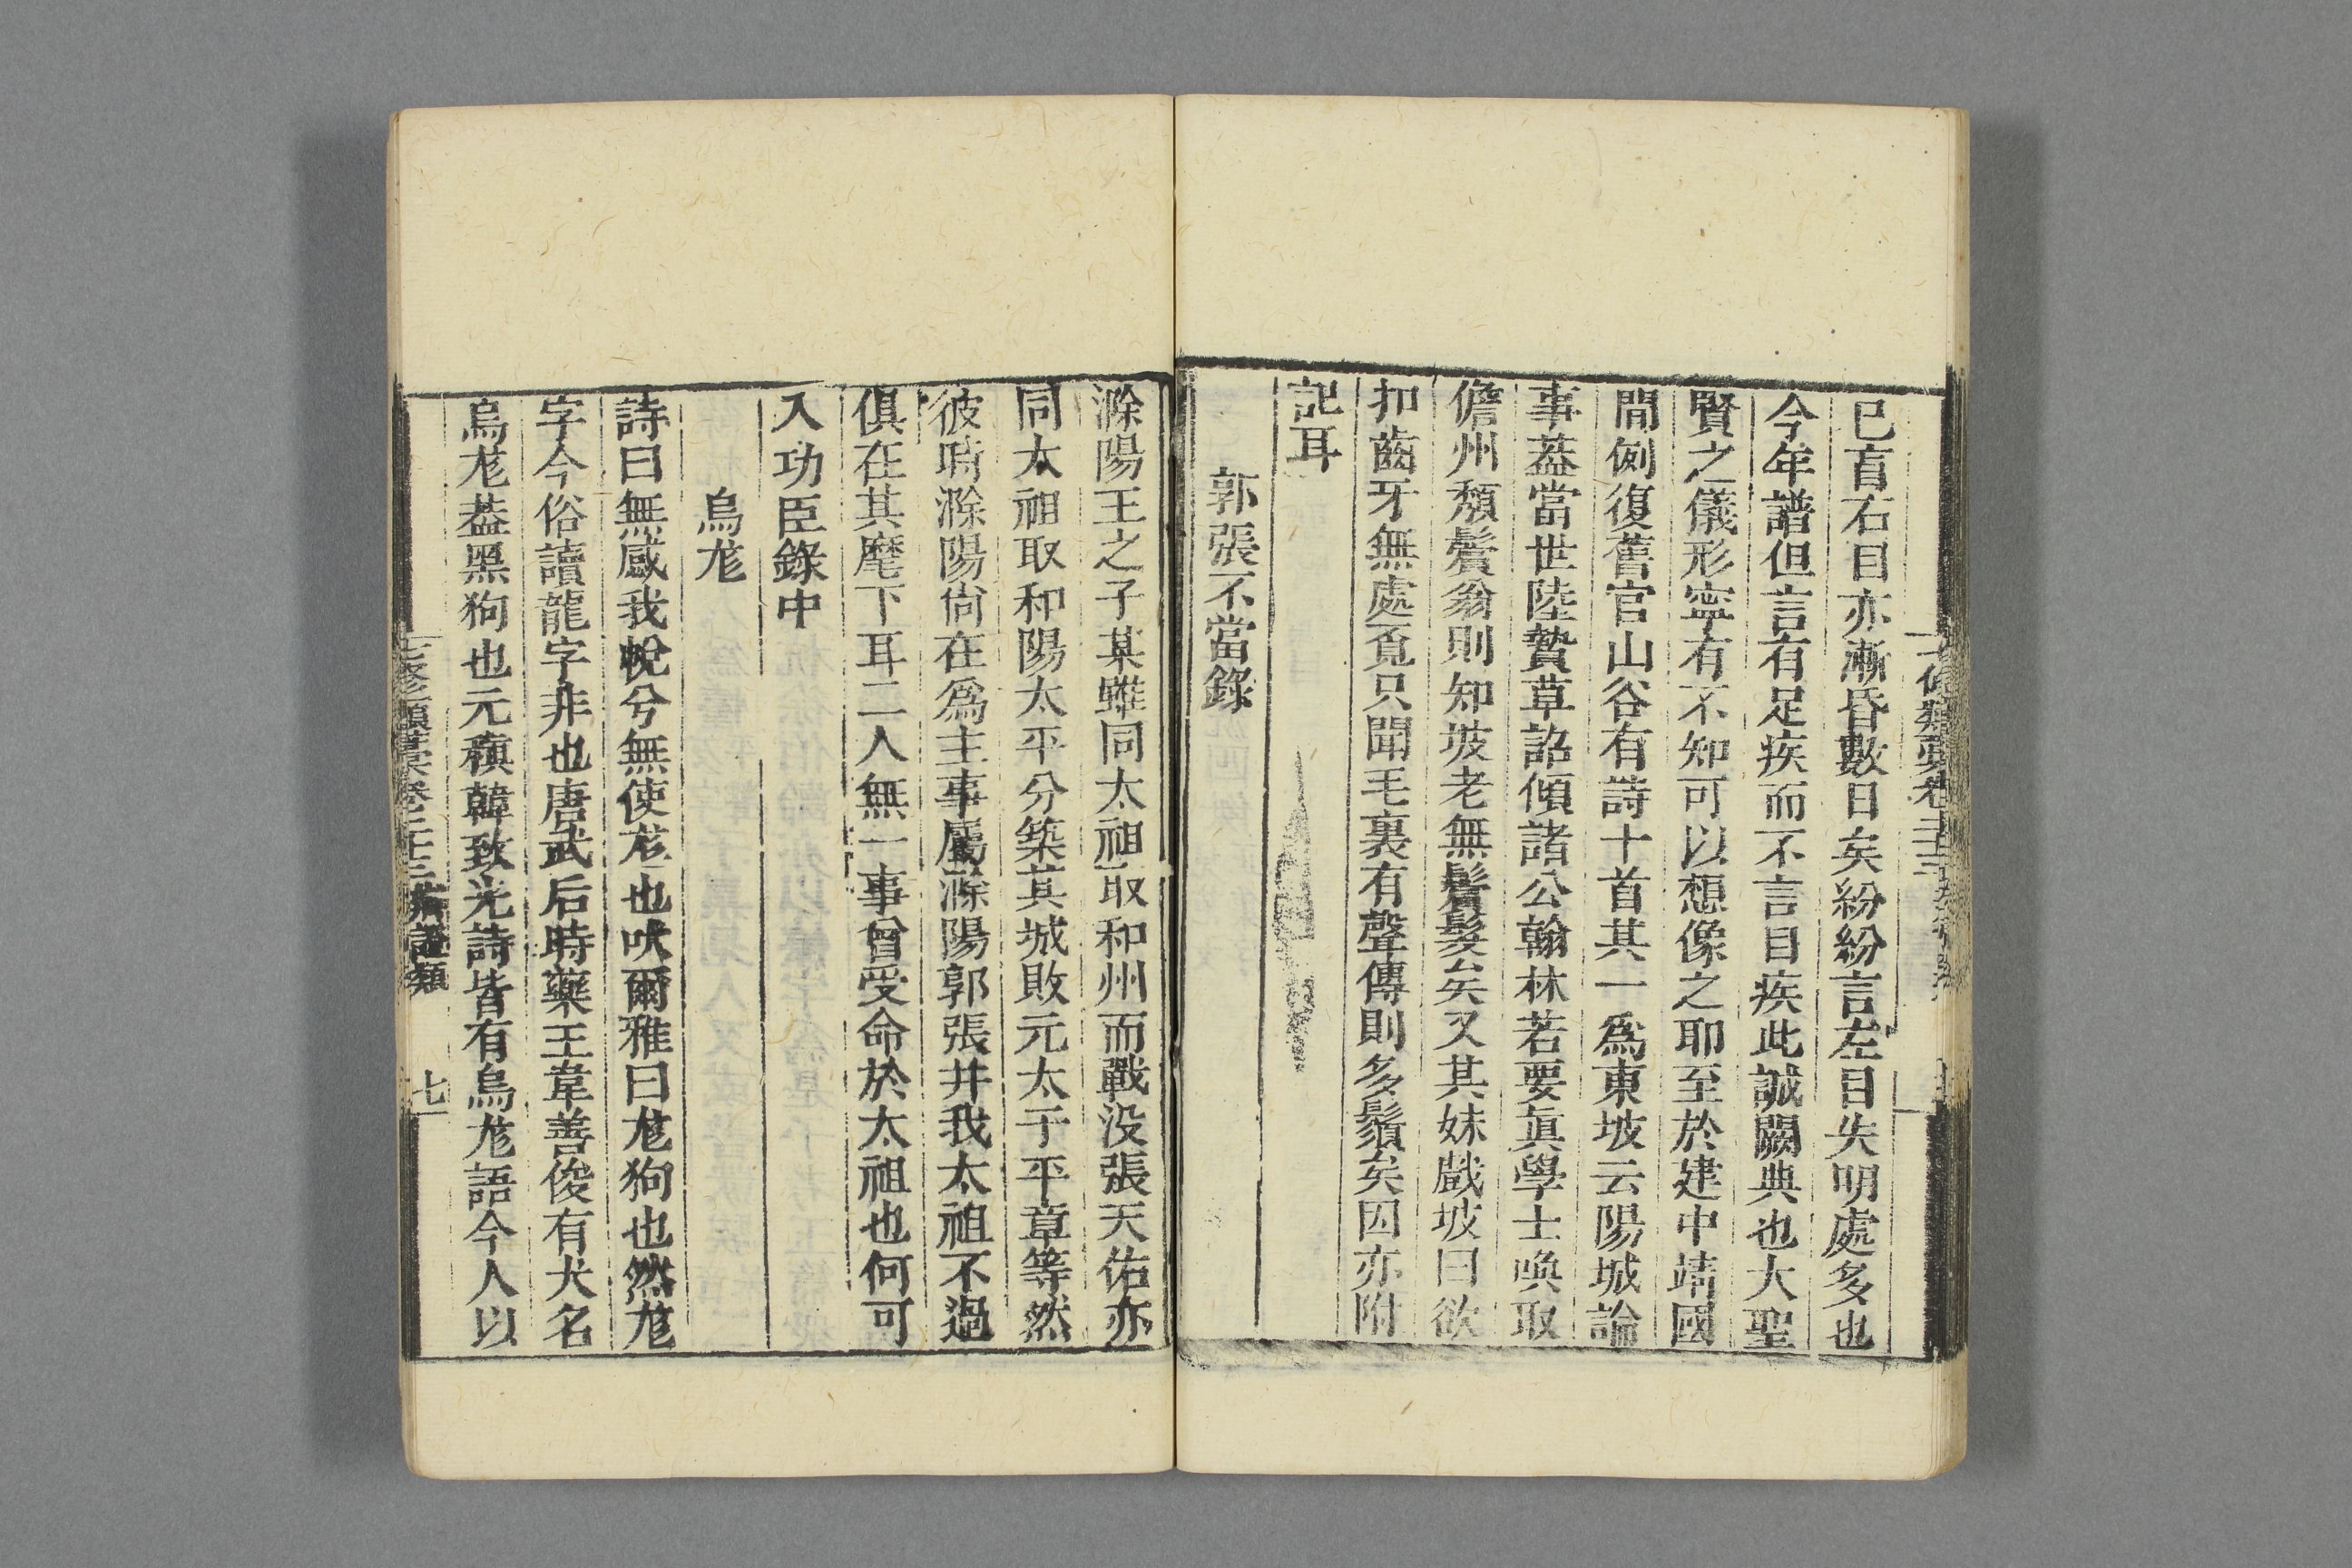 已盲右目亦漸昏數日矣紛紛言左目失明處多也
今年譜但言有足疾而不言目疾此誠闕典也大聖
賢之儀形寧有不知可以想像之耶至於建中靖國
間例復舊官山谷有詩十首其一爲東坡云陽城論
事葢當世陸贄草詔傾諸公翰林若要眞學士喚取
儋州頽鬢翁則知坡老無鬢髮矣又其妹戲坡曰欲
扣齒牙無處覓只聞毛裏有聲傳則多鬚矣因亦附
記耳
郭張不當錄
滁陽王之子某雖同太祖取和州而戰没張天佑亦
同太祖取和陽太平分築其城敗元太子平章等然
彼時滁陽尙在爲主事屬滁陽郭張幷我太祖不過
俱在其麾下耳二人無一事曾受命於太祖也何可
入功臣錄中
烏尨
詩曰無感我帨兮無使尨也吠爾雅曰尨狗也然尨
字今俗讀龍字非也唐武后時藥王韋善俊有犬名
烏尨葢黑狗也元稹韓致光詩皆有烏尨語今人以
七修類藁卷二十三 辯證類 七